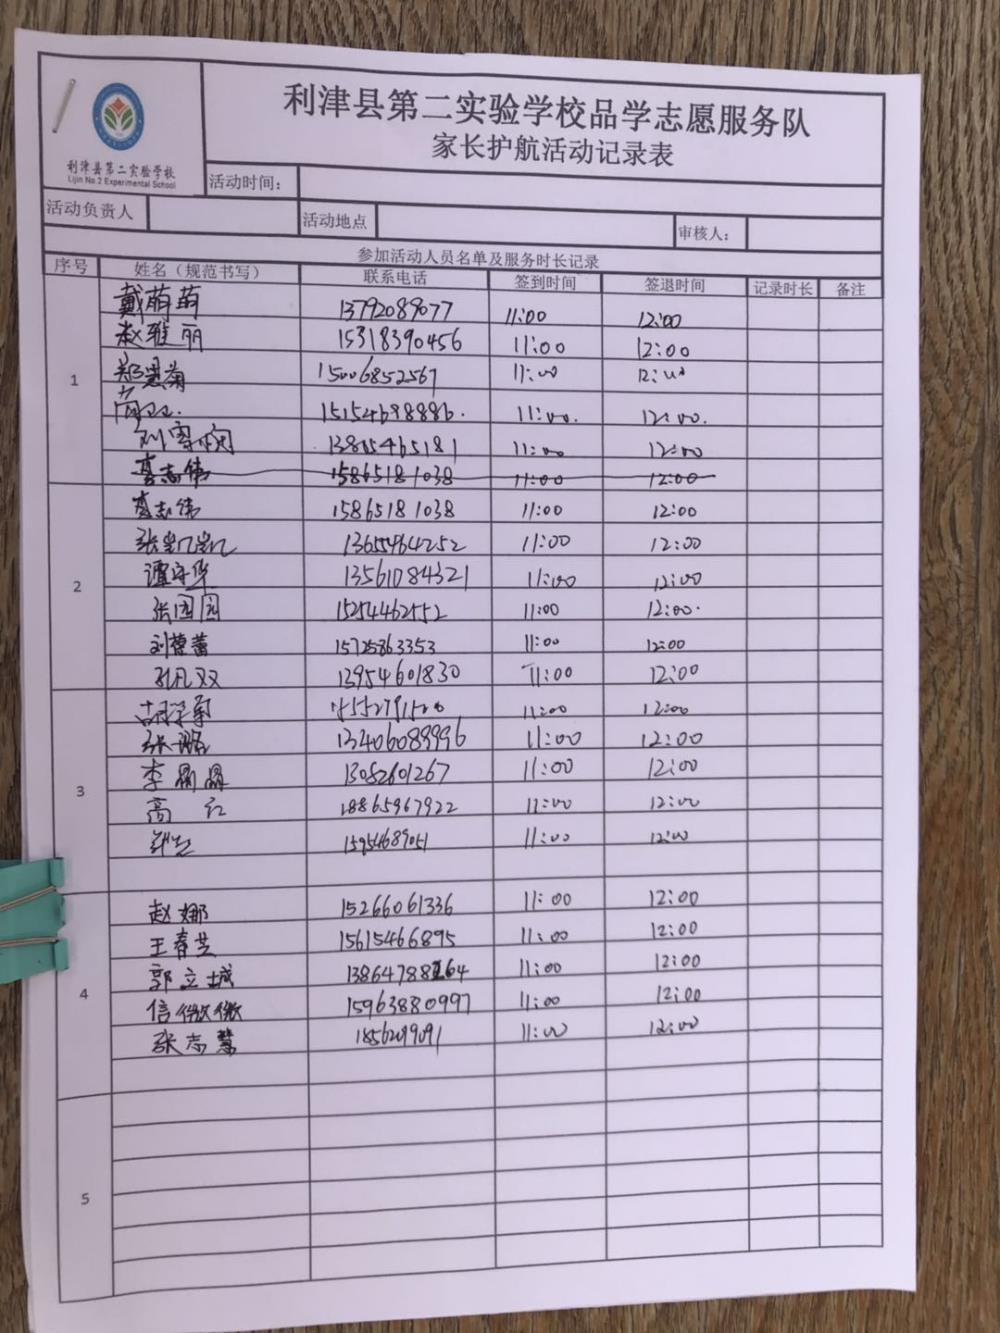 利津县第二实验学校品学志愿服务队
家长护航活动记录表
利津县第二实验学校
Lijin No.2 Experimental School
活动时间：
活动负责人 活动地点 审核人：
参加活动人员名单及服务时长记录
序号 姓名（规范书写） 联系电话 签到时间 签退时间 记录时长 备注
1
戴萌萌 13792089077 11:00 12:00
赵雅丽 15318390456 11:00 12:00
郑思菊 15006852567 11:00 12:00
15154698886. 11:00. 12:00.
刘雪 13805465181 11:00 12:00
李志伟 15865181038 11:00 12:00
2
李志伟 15865181038 11:00 12:00
张凯凯 13655464252 11:00 12:00
谭守华 13561084321 11:00 12:00
张园园 15254462552 11:00 12:00.
刘蕾蕾 15725863353 11:00 12:00
孔凡双 13954601830 11:00 12:00
3
胡学菊 11:00 12:00
张璐 13406089996 11:00 12:00
李晶晶 13052601267 11:00 12:00
高红 18865967922 11:00 12:00
15954689051 11:00 12:00
4
赵娜 15266061336 11:00 12:00
王春芝 15615466895 11:00 12:00
郭立城 11:00 12:00
信微微 15963880997 11:00 12:00
张志慧 11:00 12:00
5